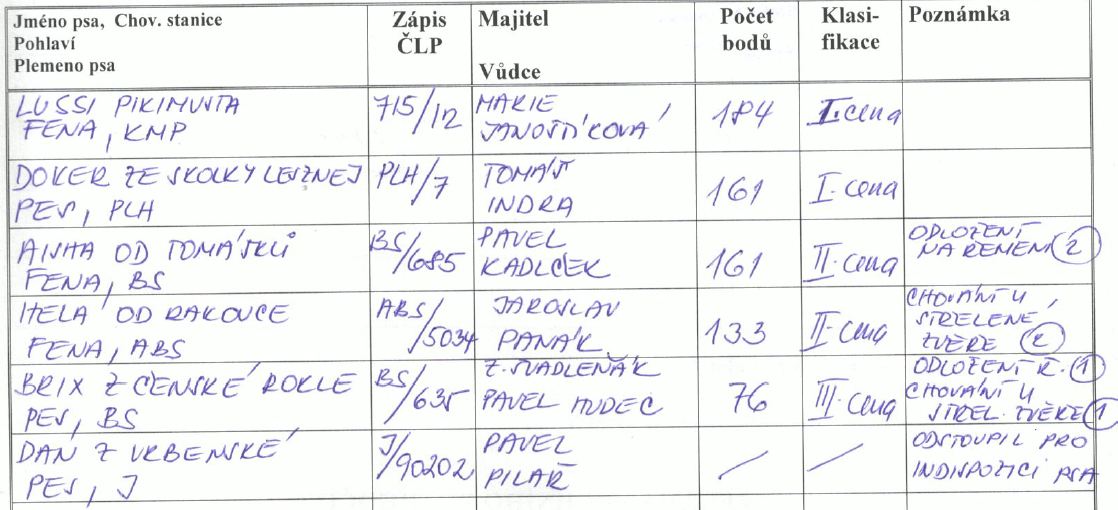 Jméno psa, Chov. stanice
Pohlaví
Plemeno psa
Zápis
ČLP
Majitel
Vůdce
Počet
bodů
Klasi-
fikace
Poznámka
LUSSI PIKIMUSTA
FENA, KMP
715/12
MARIE
JANOŠTÍKOVÁ
184
I. cena
DOKER ZE SKOLKY LESZNEJ
PES, PLH
PLH/7
TOMÁŠ
INDRA
161
I. cena
AISHA OD TOMÁŠKŮ
FENA, BS
BS/685
PAVEL
KADLČEK
161
II. cena
ODLOŽENÍ
NA ŘEMENI 2
HELA OD RAKOVCE
FENA, ABS
ABS/5034
JAROSLAV
PANÁK
133
II. cena
CHOVÁNÍ U
STŘELENÉ
ZVĚŘE 2
BRIX Z ČENSKÉ ROKLE
PES, BS
BS/635
Z. SVADLEŇÁK
PAVEL HUDEC
76
III. cena
ODLOŽENÍ Ř. 1
CHOVÁNÍ U
STŘEL. ZVĚŘE 1
DAN Z VRBENSKÉ
PES, J
J/90202
PAVEL
PILAŘ
ODSTOUPIL PRO
INDISPOZICI PSA